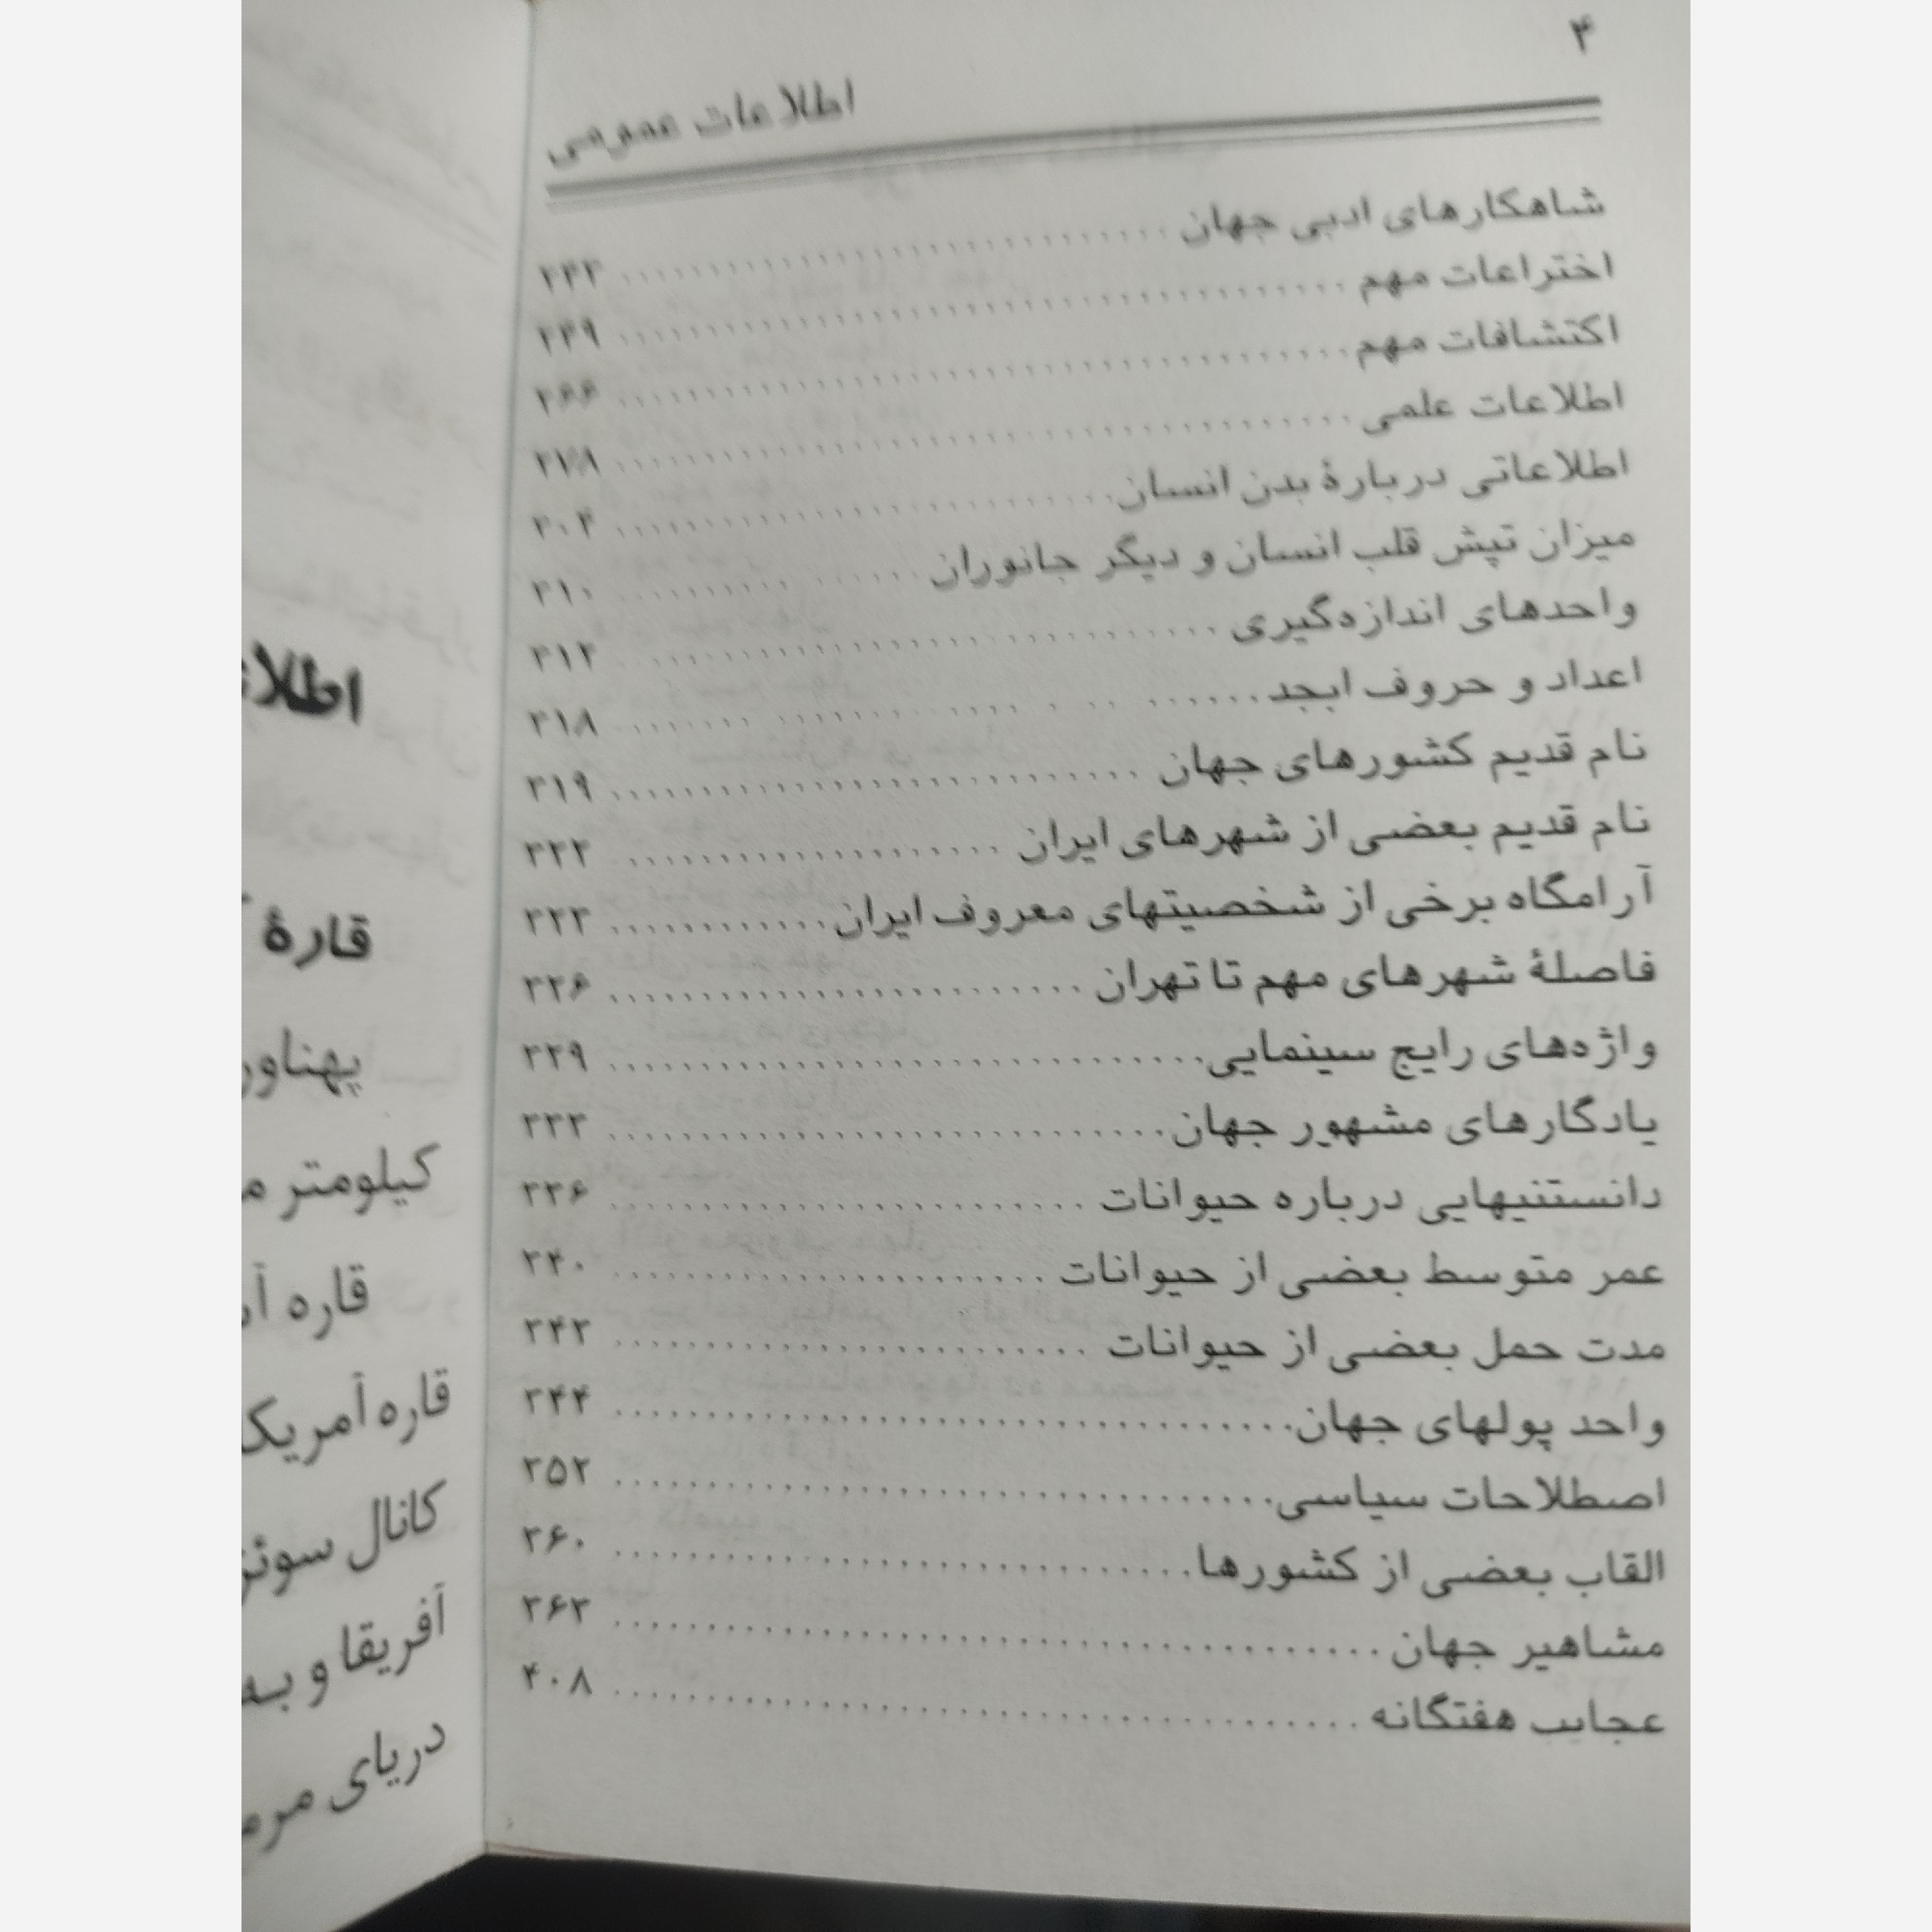 ۴
اطلاعات عمومی
شاهکارهای ادبی جهان ........ ۲۴۳
اختراعات مهم ........ ۲۴۹
اکتشافات مهم ........ ۲۶۶
اطلاعات علمی ........ ۲۷۸
اطلاعاتی دربارهٔ بدن انسان ........ ۳۰۴
میزان تپش قلب انسان و دیگر جانوران ........ ۳۱۰
واحدهای اندازه‌گیری ........ ۳۱۲
اعداد و حروف ابجد ........ ۳۱۸
نام قدیم کشورهای جهان ........ ۳۱۹
نام قدیم بعضی از شهرهای ایران ........ ۳۲۲
آرامگاه برخی از شخصیتهای معروف ایران ........ ۳۲۳
فاصلهٔ شهرهای مهم تا تهران ........ ۳۲۶
واژه‌های رایج سینمایی ........ ۳۲۹
یادگارهای مشهور جهان ........
دانستنیهایی درباره حیوانات ........ ۳۳۶
عمر متوسط بعضی از حیوانات ........ ۳۴۰
مدت حمل بعضی از حیوانات ........
واحد پولهای جهان ........ ۳۴۴
اصطلاحات سیاسی ........ ۳۵۲
القاب بعضی از کشورها ........ ۳۶۰
مشاهیر جهان ........ ۳۶۳
عجایب هفتگانه ........ ۴۰۸
قارهٔ
کیلومتر
قاره
قاره آمریک
کانال سوئز
آفریقا و به
دریای